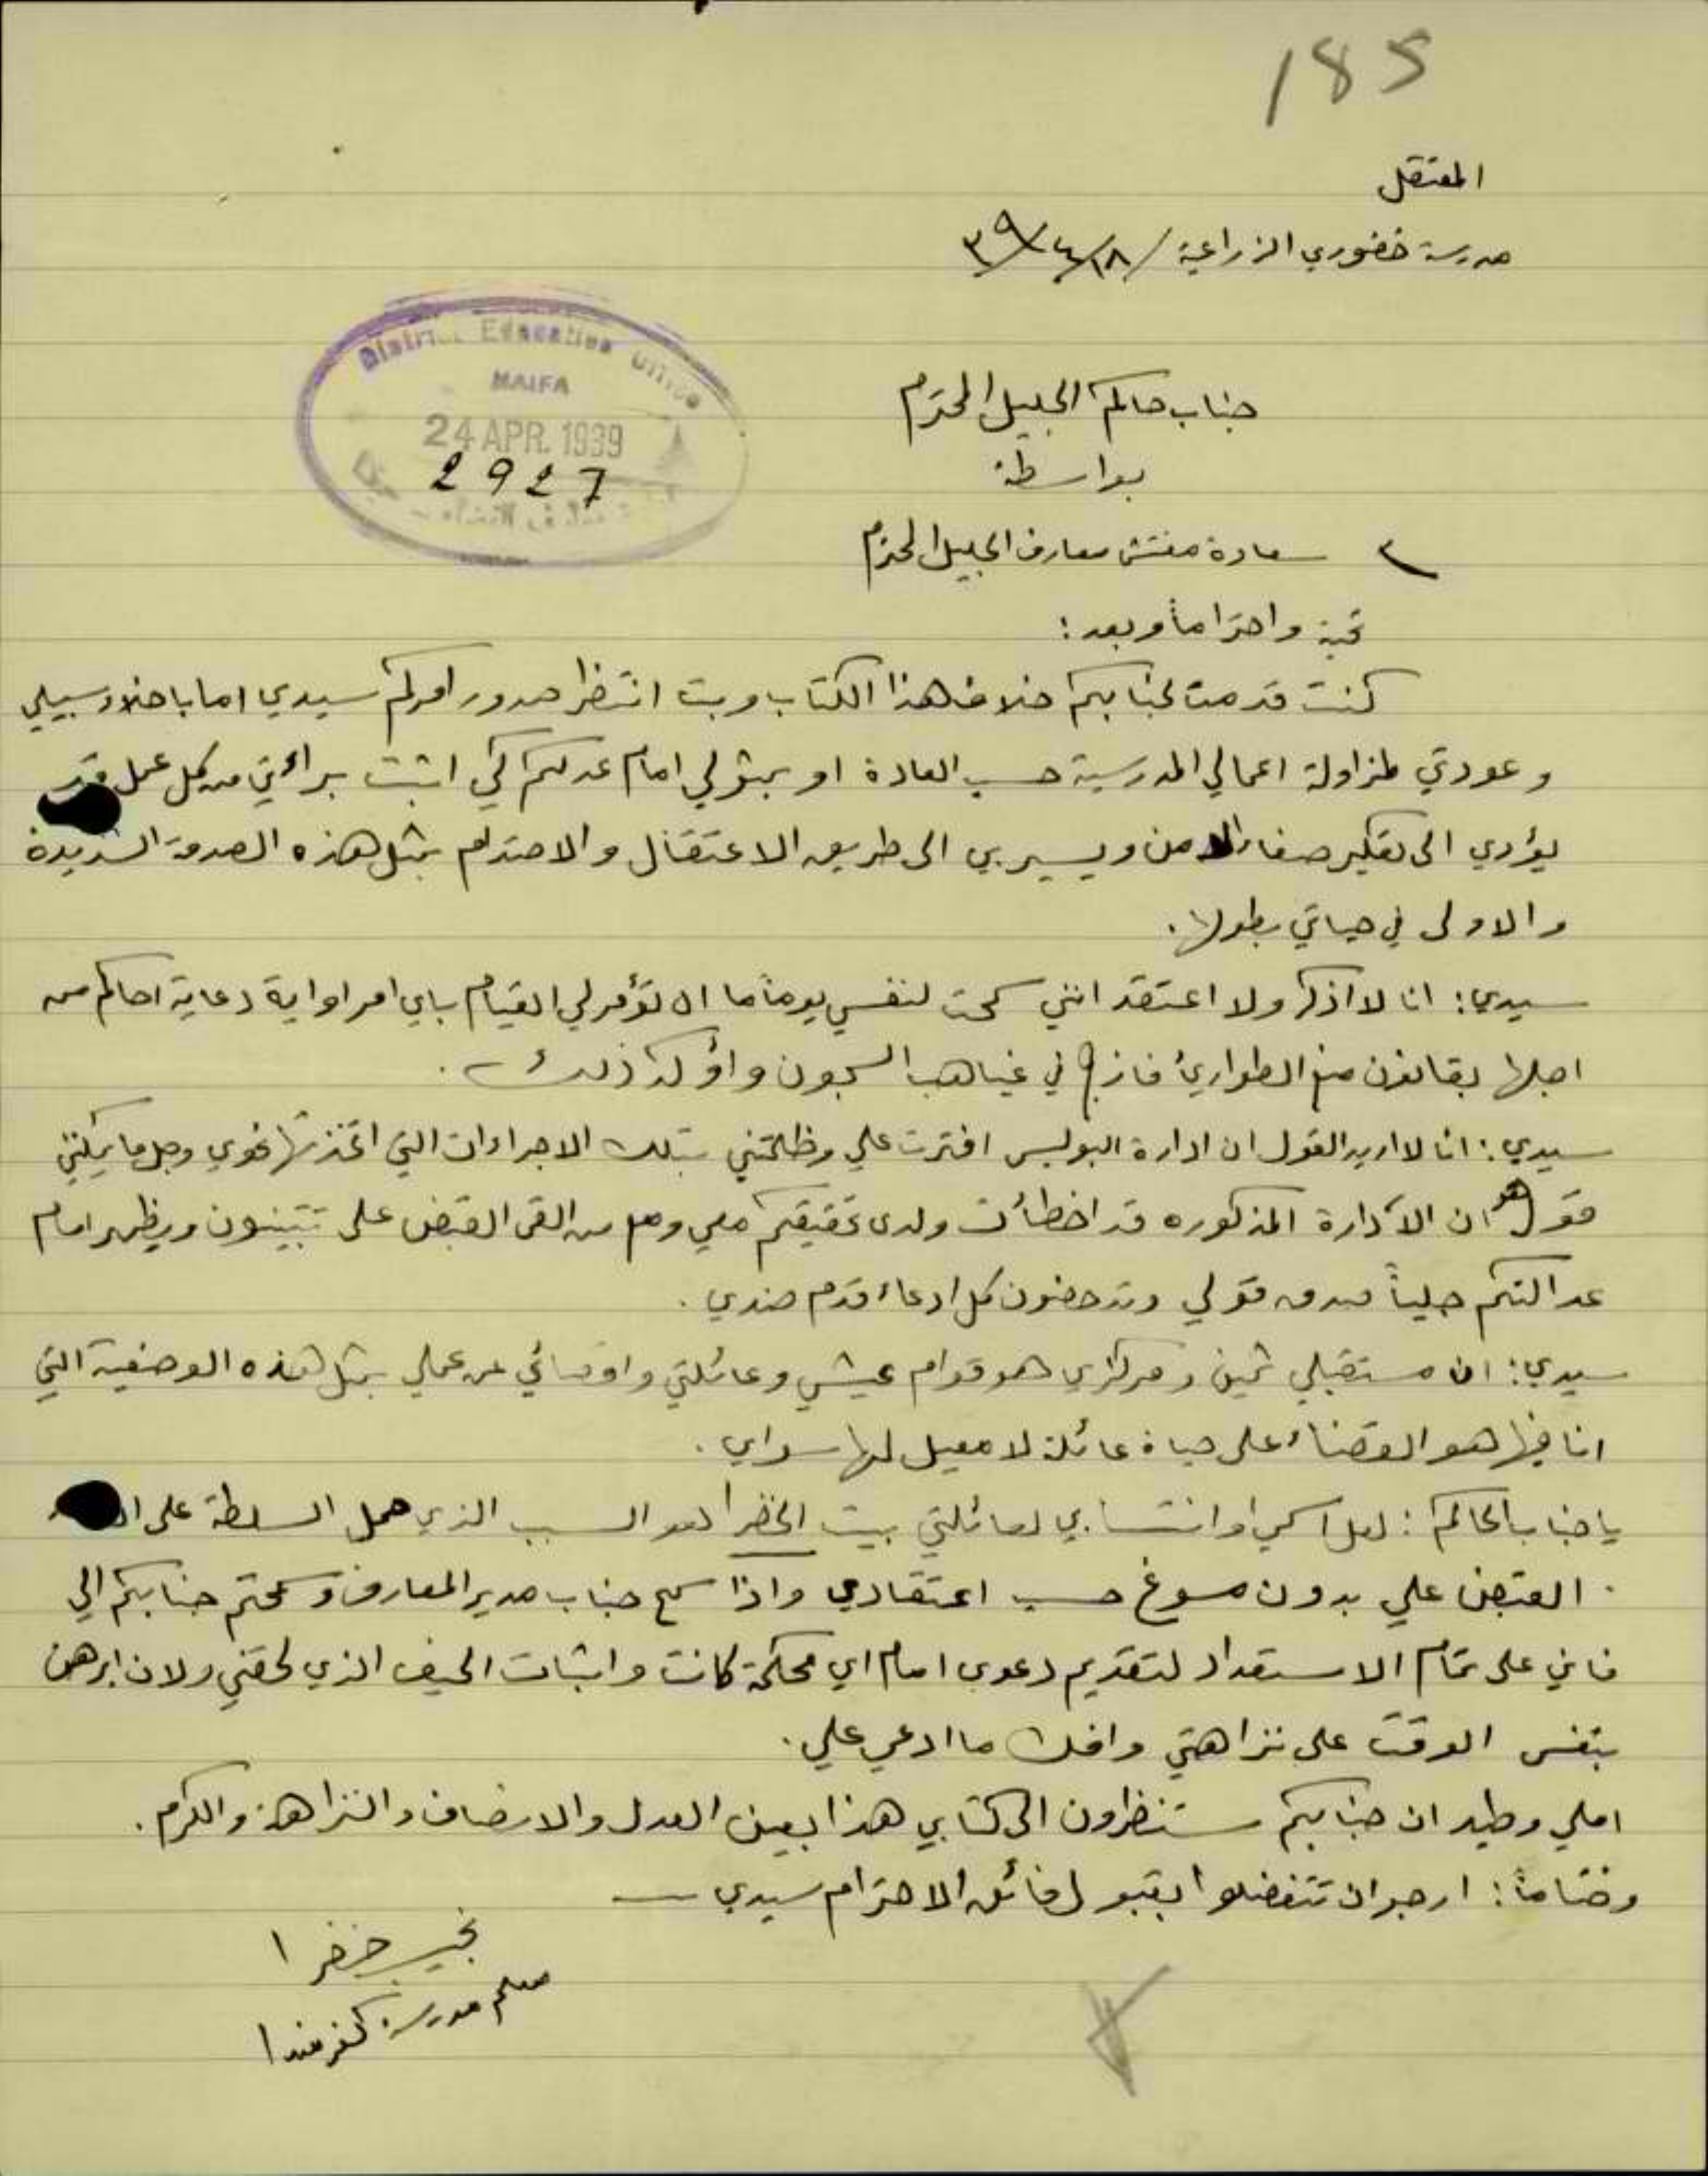 185
المعتقل
مدرسة خضوري الزراعية / ١٨/٤/٣٩
District Education Office
HAIFA
24 APR. 1939
2927
جناب حاكم الجليل المحترم
بواسطة
سعادة مفتش معارف الجليل المحترم
تحية واحتراماً وبعد :
كنت قدمت لجنابكم خلاف هذا الكتاب وبت انتظر صدور امركم سيدي اما باخلاء سبيلي
وعودتي لمزاولة اعمالي المدرسية حسب العادة او بمثولي امام عدلكم كي اثبت براءتي من كل عمل قد
يؤدي الى تعكير صفاء الامن ويسير بي الى طريق الاعتقال والاصتدام بمثل هذه الصدمة الشديدة
والاولى في حياتي بطولها .
سيدي : انا لا اذكر ولا اعتقد انني سمحت لنفسي يوماً ما ان تؤمر لي القيام باي امر او اية دعاية احاكم من
اجلها بقانون منع الطوارئ فازج في غياهب السجون واؤكد ذلك .
سيدي : انا لا اريد القول ان ادارة البوليس افترت علي وظلمتني بتلك الاجراءات التي اتخذتها نحوي وجل ما يمكنني
قوله هو ان الادارة المذكوره قد اخطأت ولدى تحقيقكم معي ومع من القى القبض علي تتبينون ويظهر امام
عدالتكم جلياً صدق قولي وتدحضون كل ادعاء قدم ضدي .
سيدي : ان مستقبلي ثمين ومركزي هو قوام عيشي وعائلتي واقصائي عن عملي بمثل هذه الوضعية التي
انا فيها هو القضاء على حياة عائلة لا معيل لها سواي .
يا جناب الحاكم : لعل اسمي او انتسابي لعائلتي بيت الخضرا لهو السبب الذي حمل السلطة على
القبض علي بدون مسوغ حسب اعتقادي واذا سمح جناب مدير المعارف وسمحتم جنابكم الي
فاني على تمام الاستعداد لتقديم دعوى امام اي محكمة كانت واثبات الحيف الذي لحقني ولان ابرهن
بنفس الوقت على نزاهتي وافك ما ادعي علي .
املي وطيد ان جنابكم ستنظرون الى كتابي هذا بعين العدل والانصاف والنزاهة والكرم .
وختاماً : ارجو ان تتفضلوا بقبول فائق الاحترام سيدي
نجيب خضرا
معلم مدرسة كفرمندا